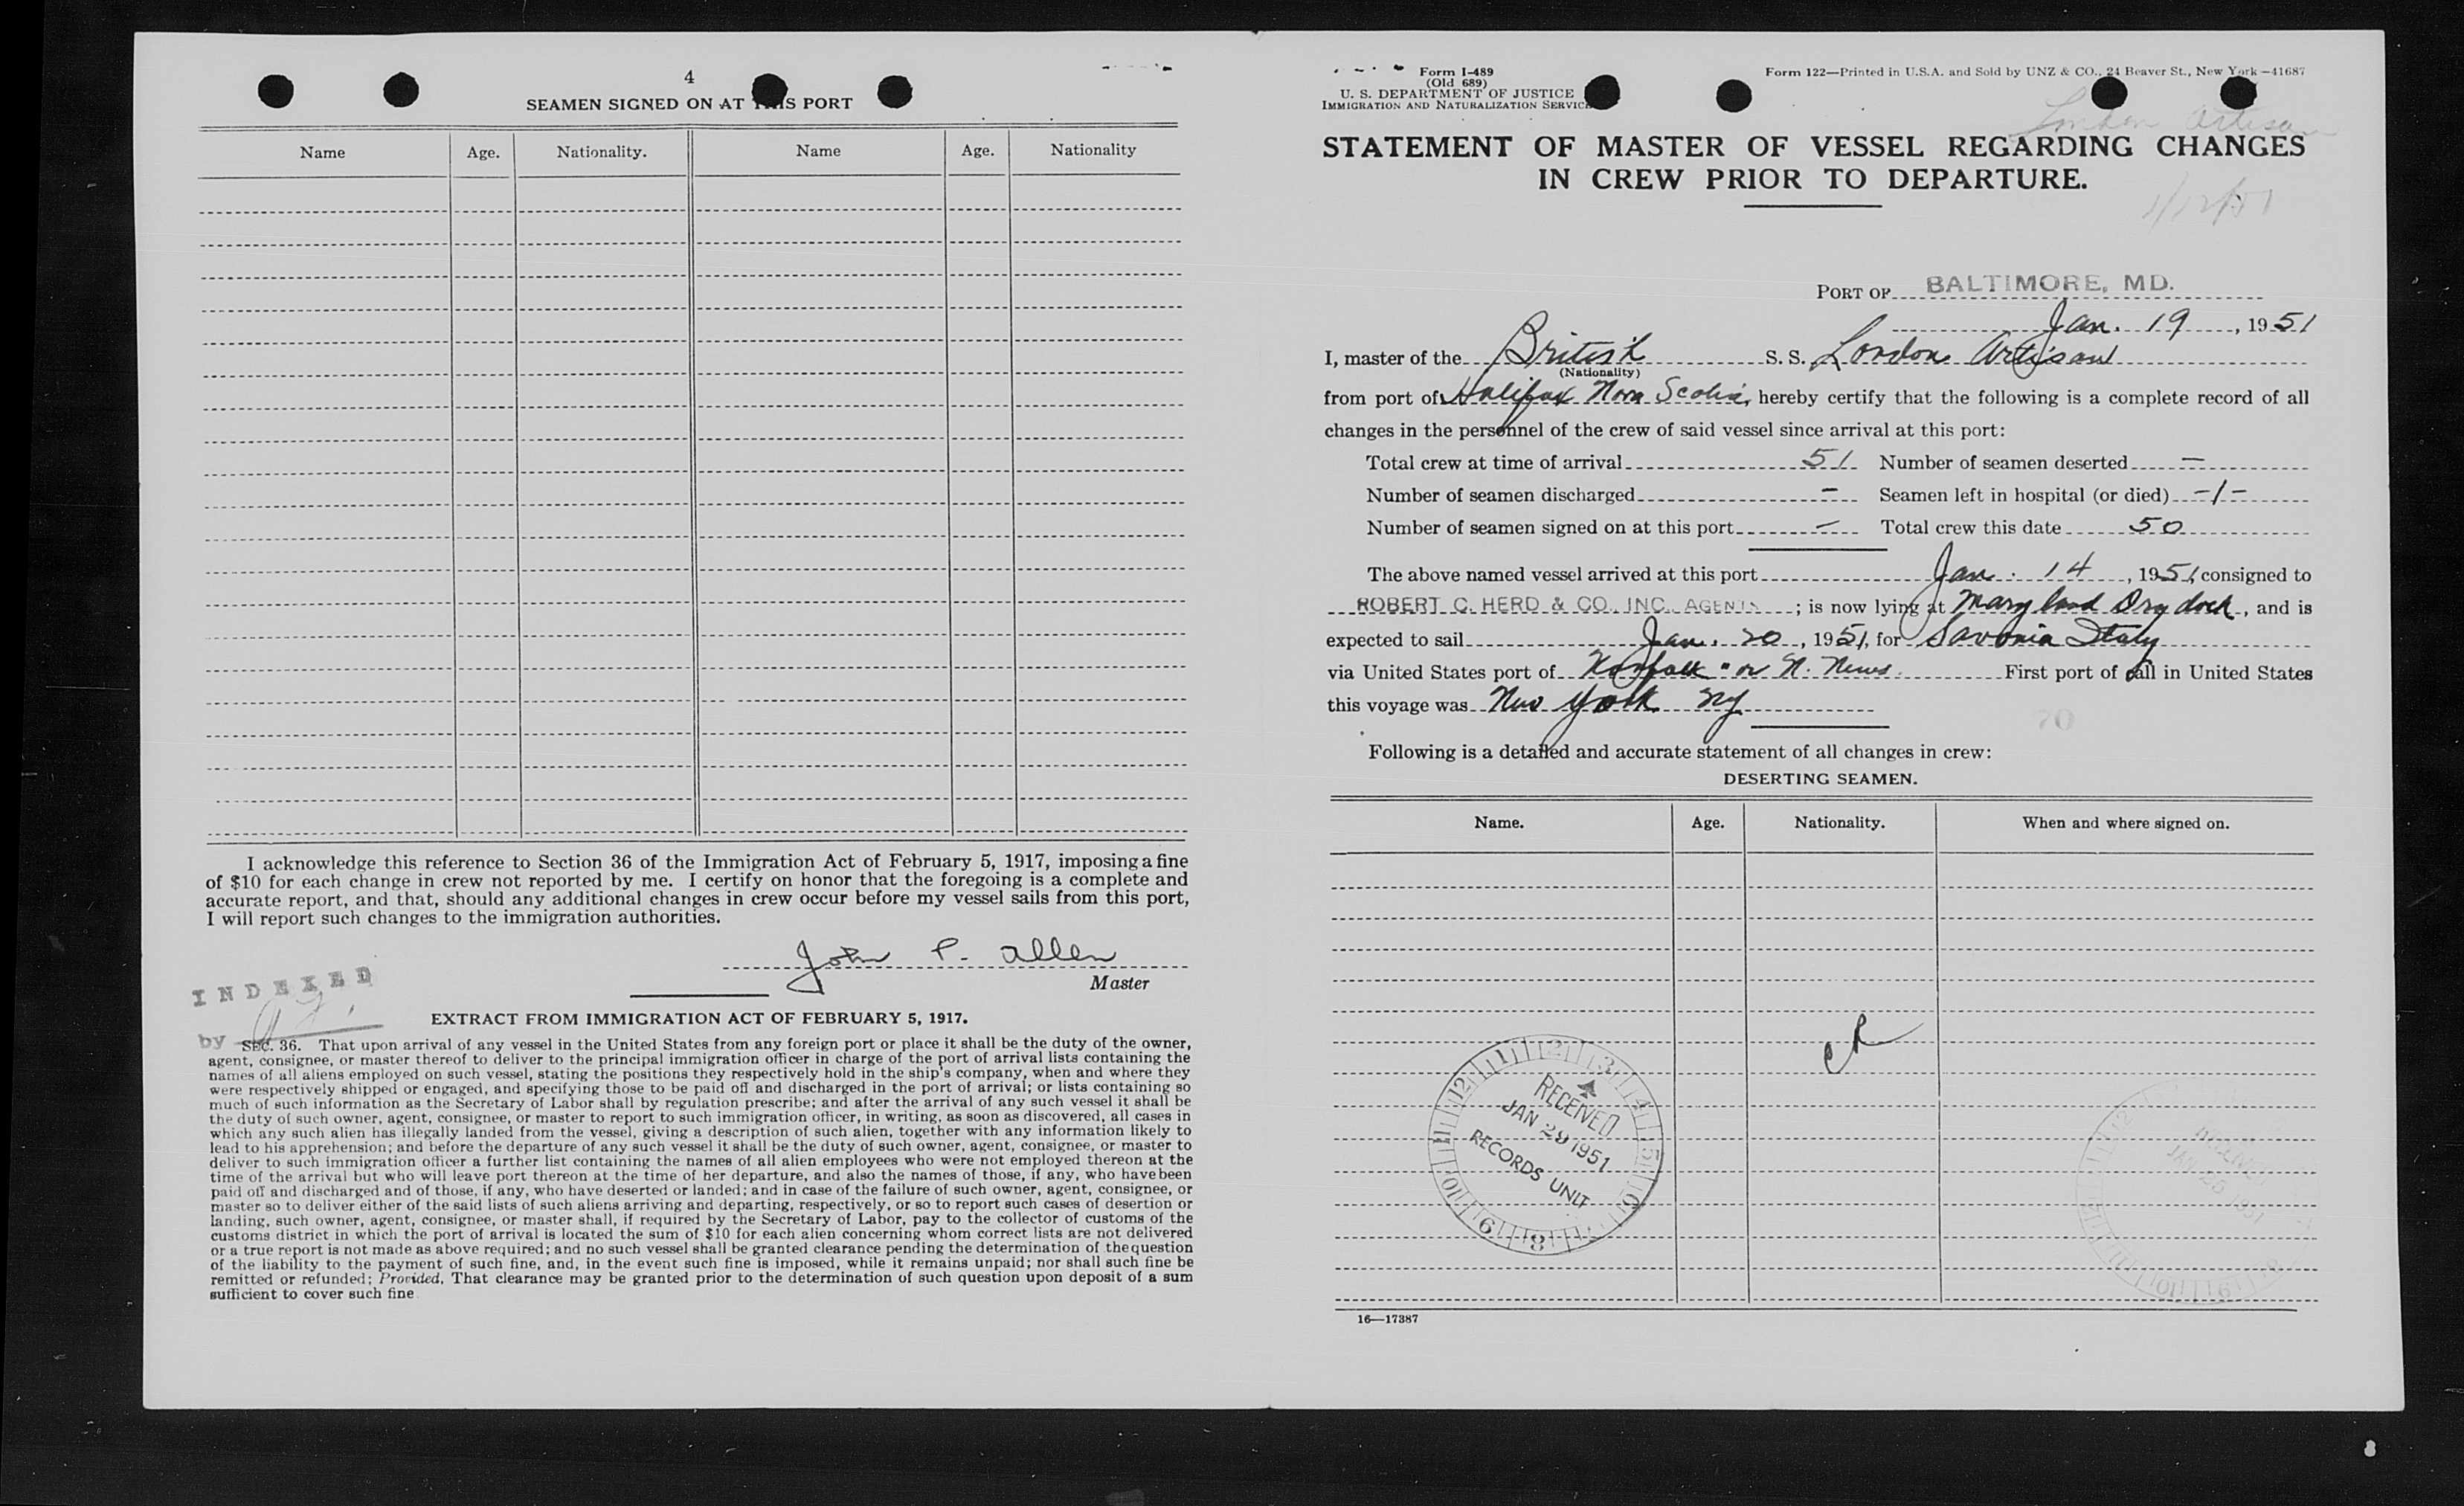 4
SEAMEN SIGNED ON AT THIS PORT
Name Age. Nationality. Name Age. Nationality
I acknowledge this reference to Section 36 of the Immigration Act of February 5, 1917, imposing a fine
of $10 for each change in crew not reported by me. I certify on honor that the foregoing is a complete and
accurate report, and that, should any additional changes in crew occur before my vessel sails from this port,
I will report such changes to the immigration authorities.
John P. Allen
Master
INDEXED
by
EXTRACT FROM IMMIGRATION ACT OF FEBRUARY 5, 1917.
SEC. 36. That upon arrival of any vessel in the United States from any foreign port or place it shall be the duty of the owner,
agent, consignee, or master thereof to deliver to the principal immigration officer in charge of the port of arrival lists containing the
names of all aliens employed on such vessel, stating the positions they respectively hold in the ship's company, when and where they
were respectively shipped or engaged, and specifying those to be paid off and discharged in the port of arrival; or lists containing so
much of such information as the Secretary of Labor shall by regulation prescribe; and after the arrival of any such vessel it shall be
the duty of such owner, agent, consignee, or master to report to such immigration officer, in writing, as soon as discovered, all cases in
which any such alien has illegally landed from the vessel, giving a description of such alien, together with any information likely to
lead to his apprehension; and before the departure of any such vessel it shall be the duty of such owner, agent, consignee, or master to
deliver to such immigration officer a further list containing the names of all alien employees who were not employed thereon at the
time of the arrival but who will leave port thereon at the time of her departure, and also the names of those, if any, who have been
paid off and discharged and of those, if any, who have deserted or landed; and in case of the failure of such owner, agent, consignee, or
master so to deliver either of the said lists of such aliens arriving and departing, respectively, or so to report such cases of desertion or
landing, such owner, agent, consignee, or master shall, if required by the Secretary of Labor, pay to the collector of customs of the
customs district in which the port of arrival is located the sum of $10 for each alien concerning whom correct lists are not delivered
or a true report is not made as above required; and no such vessel shall be granted clearance pending the determination of the question
of the liability to the payment of such fine, and, in the event such fine is imposed, while it remains unpaid; nor shall such fine be
remitted or refunded; Provided, That clearance may be granted prior to the determination of such question upon deposit of a sum
sufficient to cover such fine
Form I-489
(Old 689)
U. S. DEPARTMENT OF JUSTICE
IMMIGRATION AND NATURALIZATION SERVICE
Form 122—Printed in U.S.A. and Sold by UNZ & CO., 24 Beaver St., New York—41687
London Artisan
STATEMENT OF MASTER OF VESSEL REGARDING CHANGES
IN CREW PRIOR TO DEPARTURE.
1/12/51
PORT OF BALTIMORE, MD.
Jan. 19, 1951
I, master of the British S. S. London Artisan
(Nationality)
from port of Halifax Nova Scotia, hereby certify that the following is a complete record of all
changes in the personnel of the crew of said vessel since arrival at this port:
Total crew at time of arrival 51 Number of seamen deserted —
Number of seamen discharged — Seamen left in hospital (or died) -1-
Number of seamen signed on at this port — Total crew this date 50
The above named vessel arrived at this port Jan. 14, 1951, consigned to
ROBERT C. HERD & CO., INC., AGENTS; is now lying at Maryland Drydock, and is
expected to sail Jan. 20, 1951, for Savonia Italy
via United States port of Norfolk or N. News. First port of call in United States
this voyage was New York NY
70
Following is a detailed and accurate statement of all changes in crew:
DESERTING SEAMEN.
Name. Age. Nationality. When and where signed on.
RECEIVED
JAN 29 1951
RECORDS UNIT
RECEIVED
JAN 26 1951
16—17387